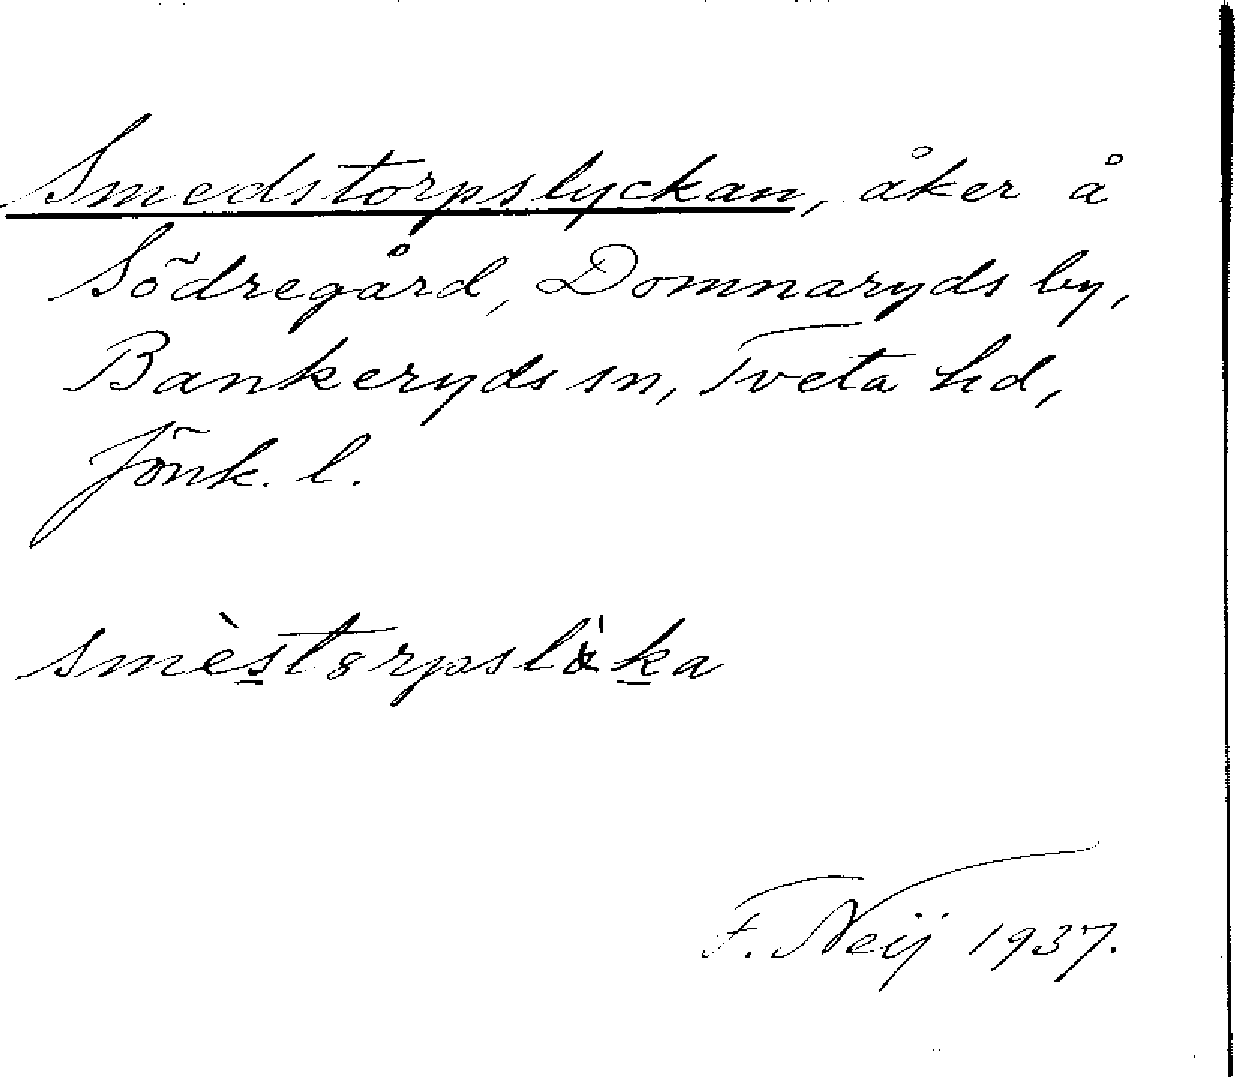 Smedstorpslyckan, åker å
Södregård, Domnaryds by,
Bankeryds sn, Tveta hd,
Jönk. l.
smèstorpslö̀ka
F. Neij 1937.